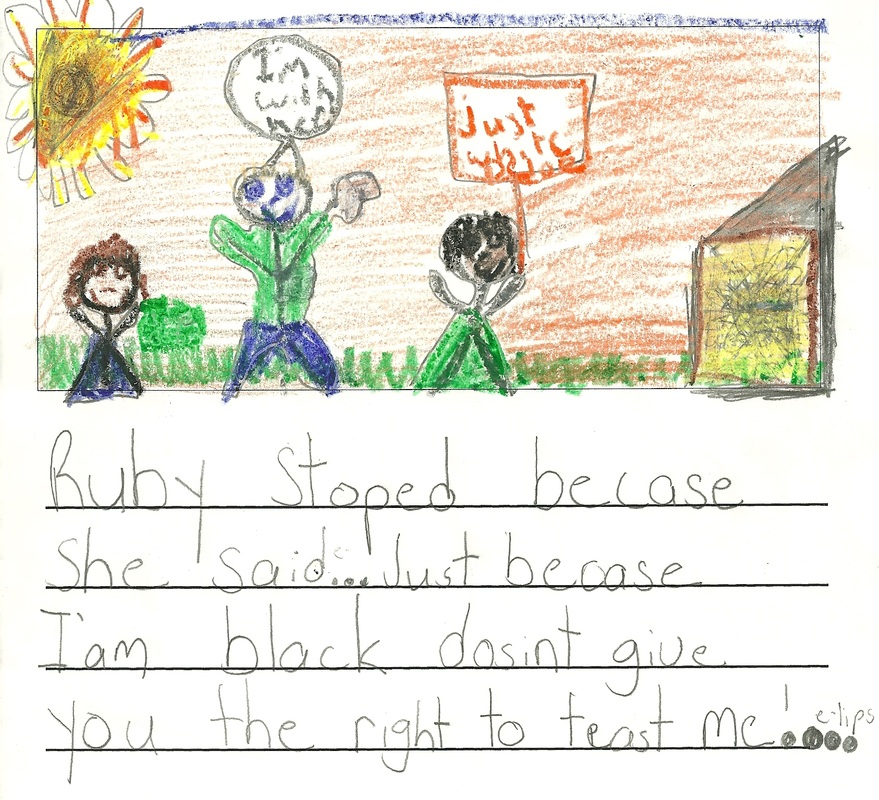 I'm
with
Just
white
Ruby Stoped becase
She said... Just becase
I'am black dosint give
you the right to teast me!....
e-lips